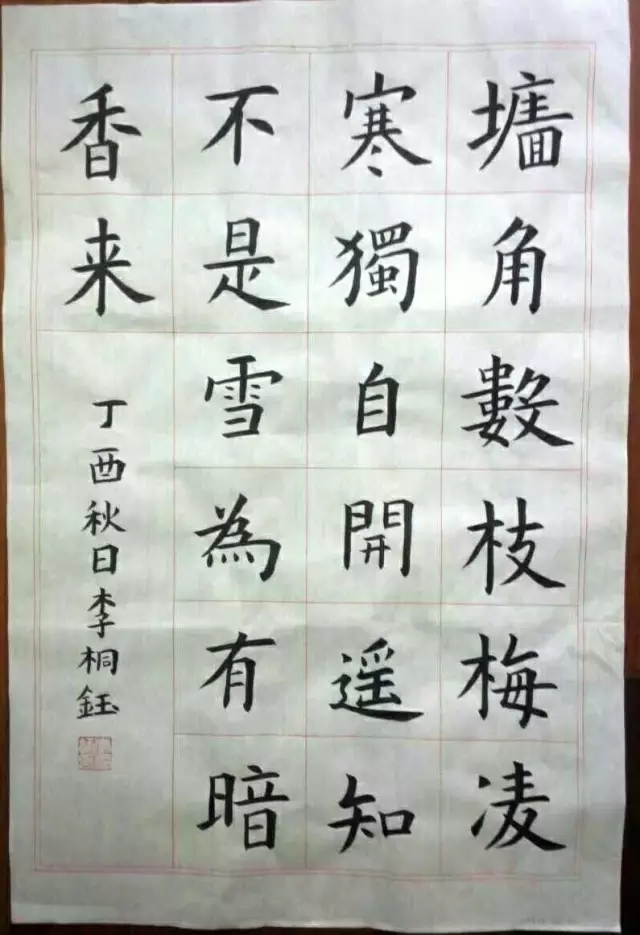 墻角數枝梅凌
寒獨自開遥知
不是雪為有暗
香来
丁酉秋日李桐鈺